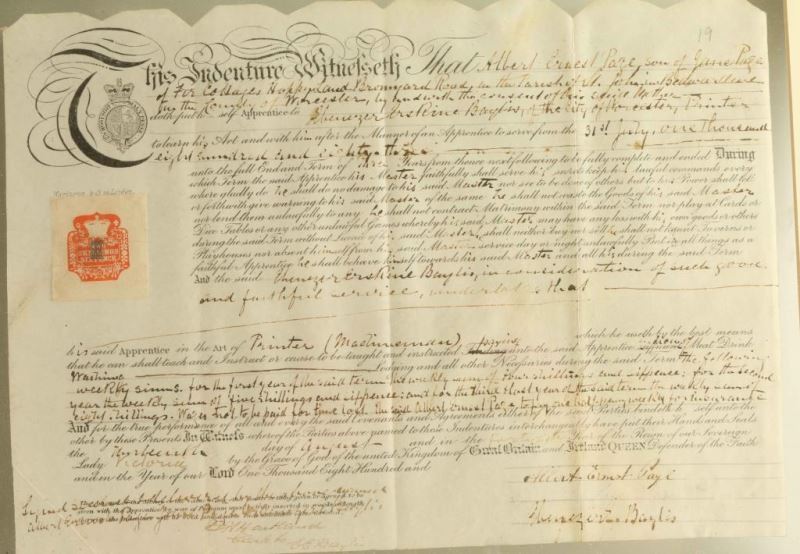 19
This Indenture Witnesseth That Albert Ernest Page, son of Jane Page
of Fir Cottages Happyland Bromyard Road, in the Parish of St. John in Bedwardine
in the County of Worcester, by and with the consent of his said Mother
doth put himself Apprentice to Ebenezer Erskine Baylis, of the City of Worcester, Printer
to learn his Art and with him after the Manner of an Apprentice to serve from the 31st July, one thousand
eight hundred and eighty three
unto the full End and Term of three Years from thence next following to be fully complete and ended During
which Term the said Apprentice his Master faithfully shall serve his secrets keep his lawful commands every
where gladly do he shall do no damage to his said Master nor see to be done of others but to his Power shall let
or forthwith give warning to his said Master of the same he shall not waste the Goods of his said Master
nor lend them unlawfully to any he shall not contract Matrimony within the said Term nor play at Cards or
Dice Tables or any other unlawful Games whereby his said Master may have any loss with his own goods or others
during the said Term without Licence of his said Master, shall neither buy nor sell he shall not haunt Taverns or
Playhouses nor absent himself from his said Master's service day or night unlawfully But in all things as a
faithful Apprentice he shall behave himself towards his said Master and all his during the said Term
And the said Ebenezer Erskine Baylis, in consideration of such good
and faithful service, undertakes that
his said Apprentice in the Art of Printer (Machineman) which he useth by the best means
that he can shall teach and Instruct or cause to be taught and instructed paying unto the said Apprentice Meat Drink
Washing Lodging and all other Necessaries during the said Term the following
weekly sums. for the first year of the said term the weekly sum of four shillings and sixpence; for the second
year the weekly sum of five shillings and sixpence; and for the third & last year of the said term the weekly sum of
eight shillings. Wages not to be paid for time lost. the said Albert Ernest Page to pay one halfpenny weekly for Insurance
And for the true performance of all and every the said Covenants and Agreements either of the said Parties bindeth h self unto the
other by these Presents In Witness whereof the Parties above named to these Indentures interchangeably have put their Hands and Seals
the day of August and in the Year of the Reign of our Sovereign
Lady Victoria by the Grace of God of the united Kingdom of Great Britain and Ireland QUEEN Defender of the Faith
and in the Year of our Lord One Thousand Eight Hundred and
Albert Ernest Page
Ebenezer Baylis